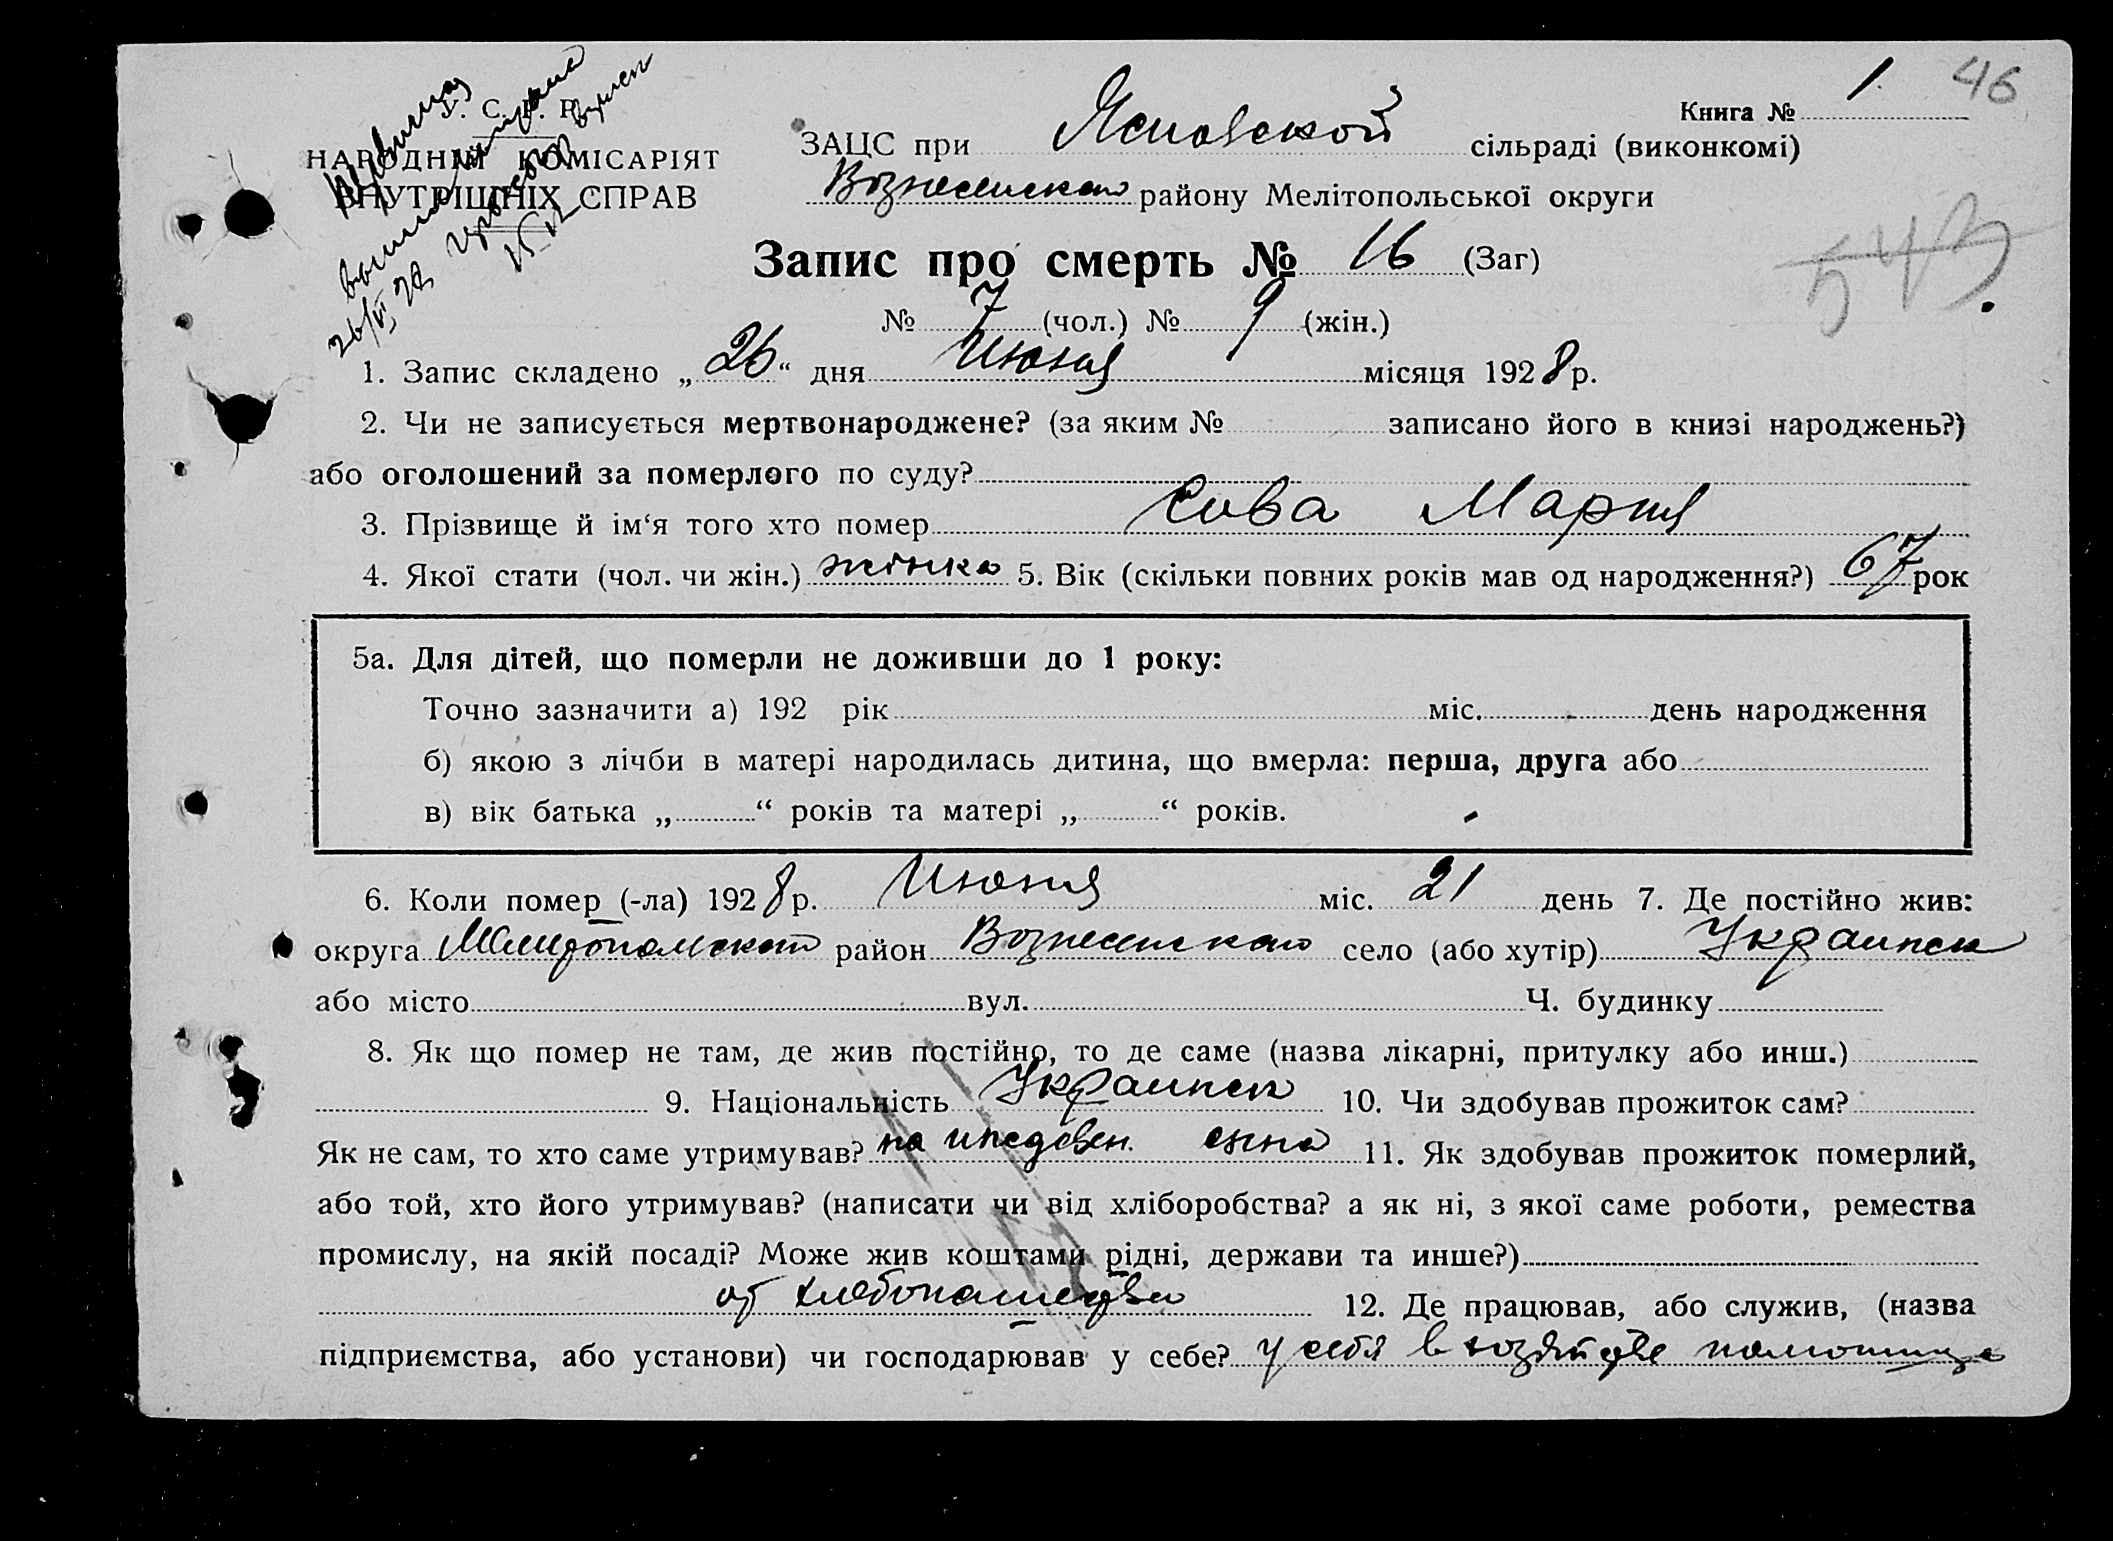 Книга № 1. 46
У. С. Р. Р.
НАРОДНІЙ КОМІСАРІЯТ
ВНУТРІШНІХ СПРАВ
ЗАЦС при Ясиовской сільраді (виконкомі)
Вознесенского району Мелітопольської округи
543
Запис про смерть № 16 (Заг)
№ 7 (чол.) № 9 (жін.)
1. Запис складено „ 26 “ дня Июня місяця 1928 р.
2. Чи не записується мертвонароджене? (за яким № записано його в книзі народжень?)
або оголошений за померлого по суду?
3. Прізвище й ім‘я того хто помер Сова Мария
4. Якої стати (чол. чи жін.) жінка 5. Вік (скільки повних років мав од народження?) 67 рок
5а. Для дітей, що померли не доживши до 1 року:
Точно зазначити а) 192 рік міс. день народження
б) якою з лічби в матері народилась дитина, що вмерла: перша, друга або
в) вік батька „ “ років та матері „ “ років.
6. Коли помер (-ла) 1928 р. Июня міс. 21 день 7. Де постійно жив:
округа Мелитопольского район Вознесенского село (або хутір) Украинск
або місто вул. Ч. будинку
8. Як що помер не там, де жив постійно, то де саме (назва лікарні, притулку або инш.)
9. Національність Украинск 10. Чи здобував прожиток сам?
Як не сам, то хто саме утримував? на иждевен. сына 11. Як здобував прожиток померлий,
або той, хто його утримував? (написати чи від хліборобства? а як ні, з якої саме роботи, ремества
промислу, на якій посаді? Може жив коштами рідні, держави та инше?)
от хлебопашества 12. Де працював, або служив, (назва
підприємства, або установи) чи господарював у себе? у себя в хозяйстве помощница